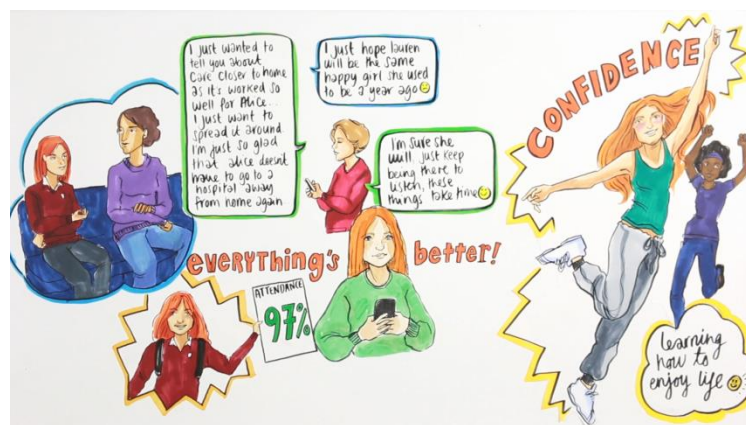 I just wanted to
tell you about
Care Closer to home
as it's worked so
well for Alice...
I just want to
spread it around
I'm just so glad
that alice doesnt
have to go to a
hospital away
from home again
I just hope lauren
will be the same
happy girl she used
to be a year ago
I'm sure she
will, just keep
being there to
listen, these
things take time
EVERYTHING'S
better!
ATTENDANCE
97%
CONFIDENCE
learning
how to
enjoy life